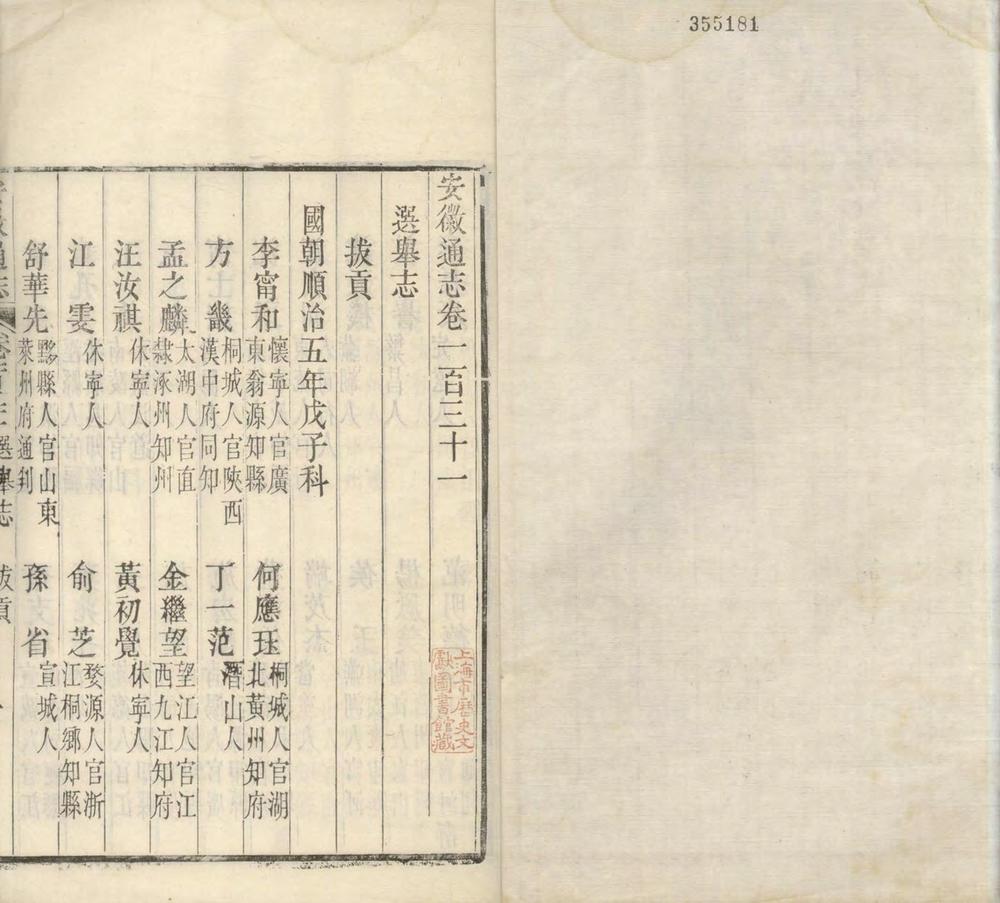 355181
安徽通志卷一百三十一
選舉志
拔貢
國朝順治五年戊子科
李甯和 懷寧人官廣東翁源知縣 何應珏 桐城人官湖北黃州知府
方畿 桐城人官陝西漢中府同知 丁一范 潛山人
孟之麟 太湖人官直隸涿州知州 金繼望 望江人官江西九江知府
汪汝祺 休寧人 黃初覺 休寧人
江雯 休寧人 俞芝 婺源人官浙江桐鄉知縣
舒華先 黟縣人官山東萊州府通判 孫省 宣城人
通志 選舉志 拔貢
上海市歷史文獻圖書館藏